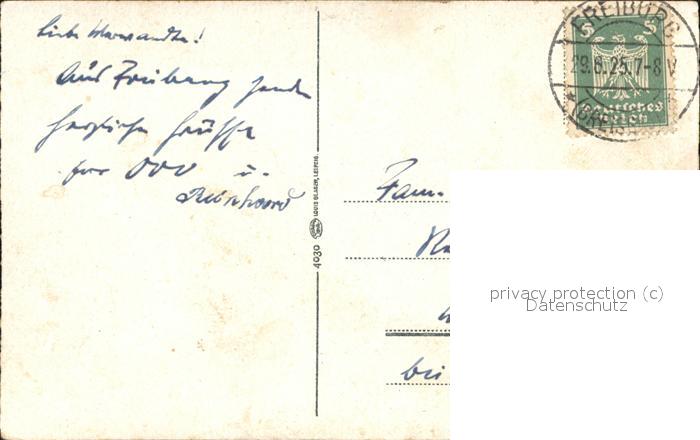 Liebe Verwandte!
Aus Freiburg senden
herzliche Grüsse
u.
FREIBURG
29.6.25.7-8 V
* (BREISGAU)
5 5
Deutsches
Reich
4030 LOUIS GLASER, LEIPZIG.
Fam.
bei
privacy protection (c)
Datenschutz